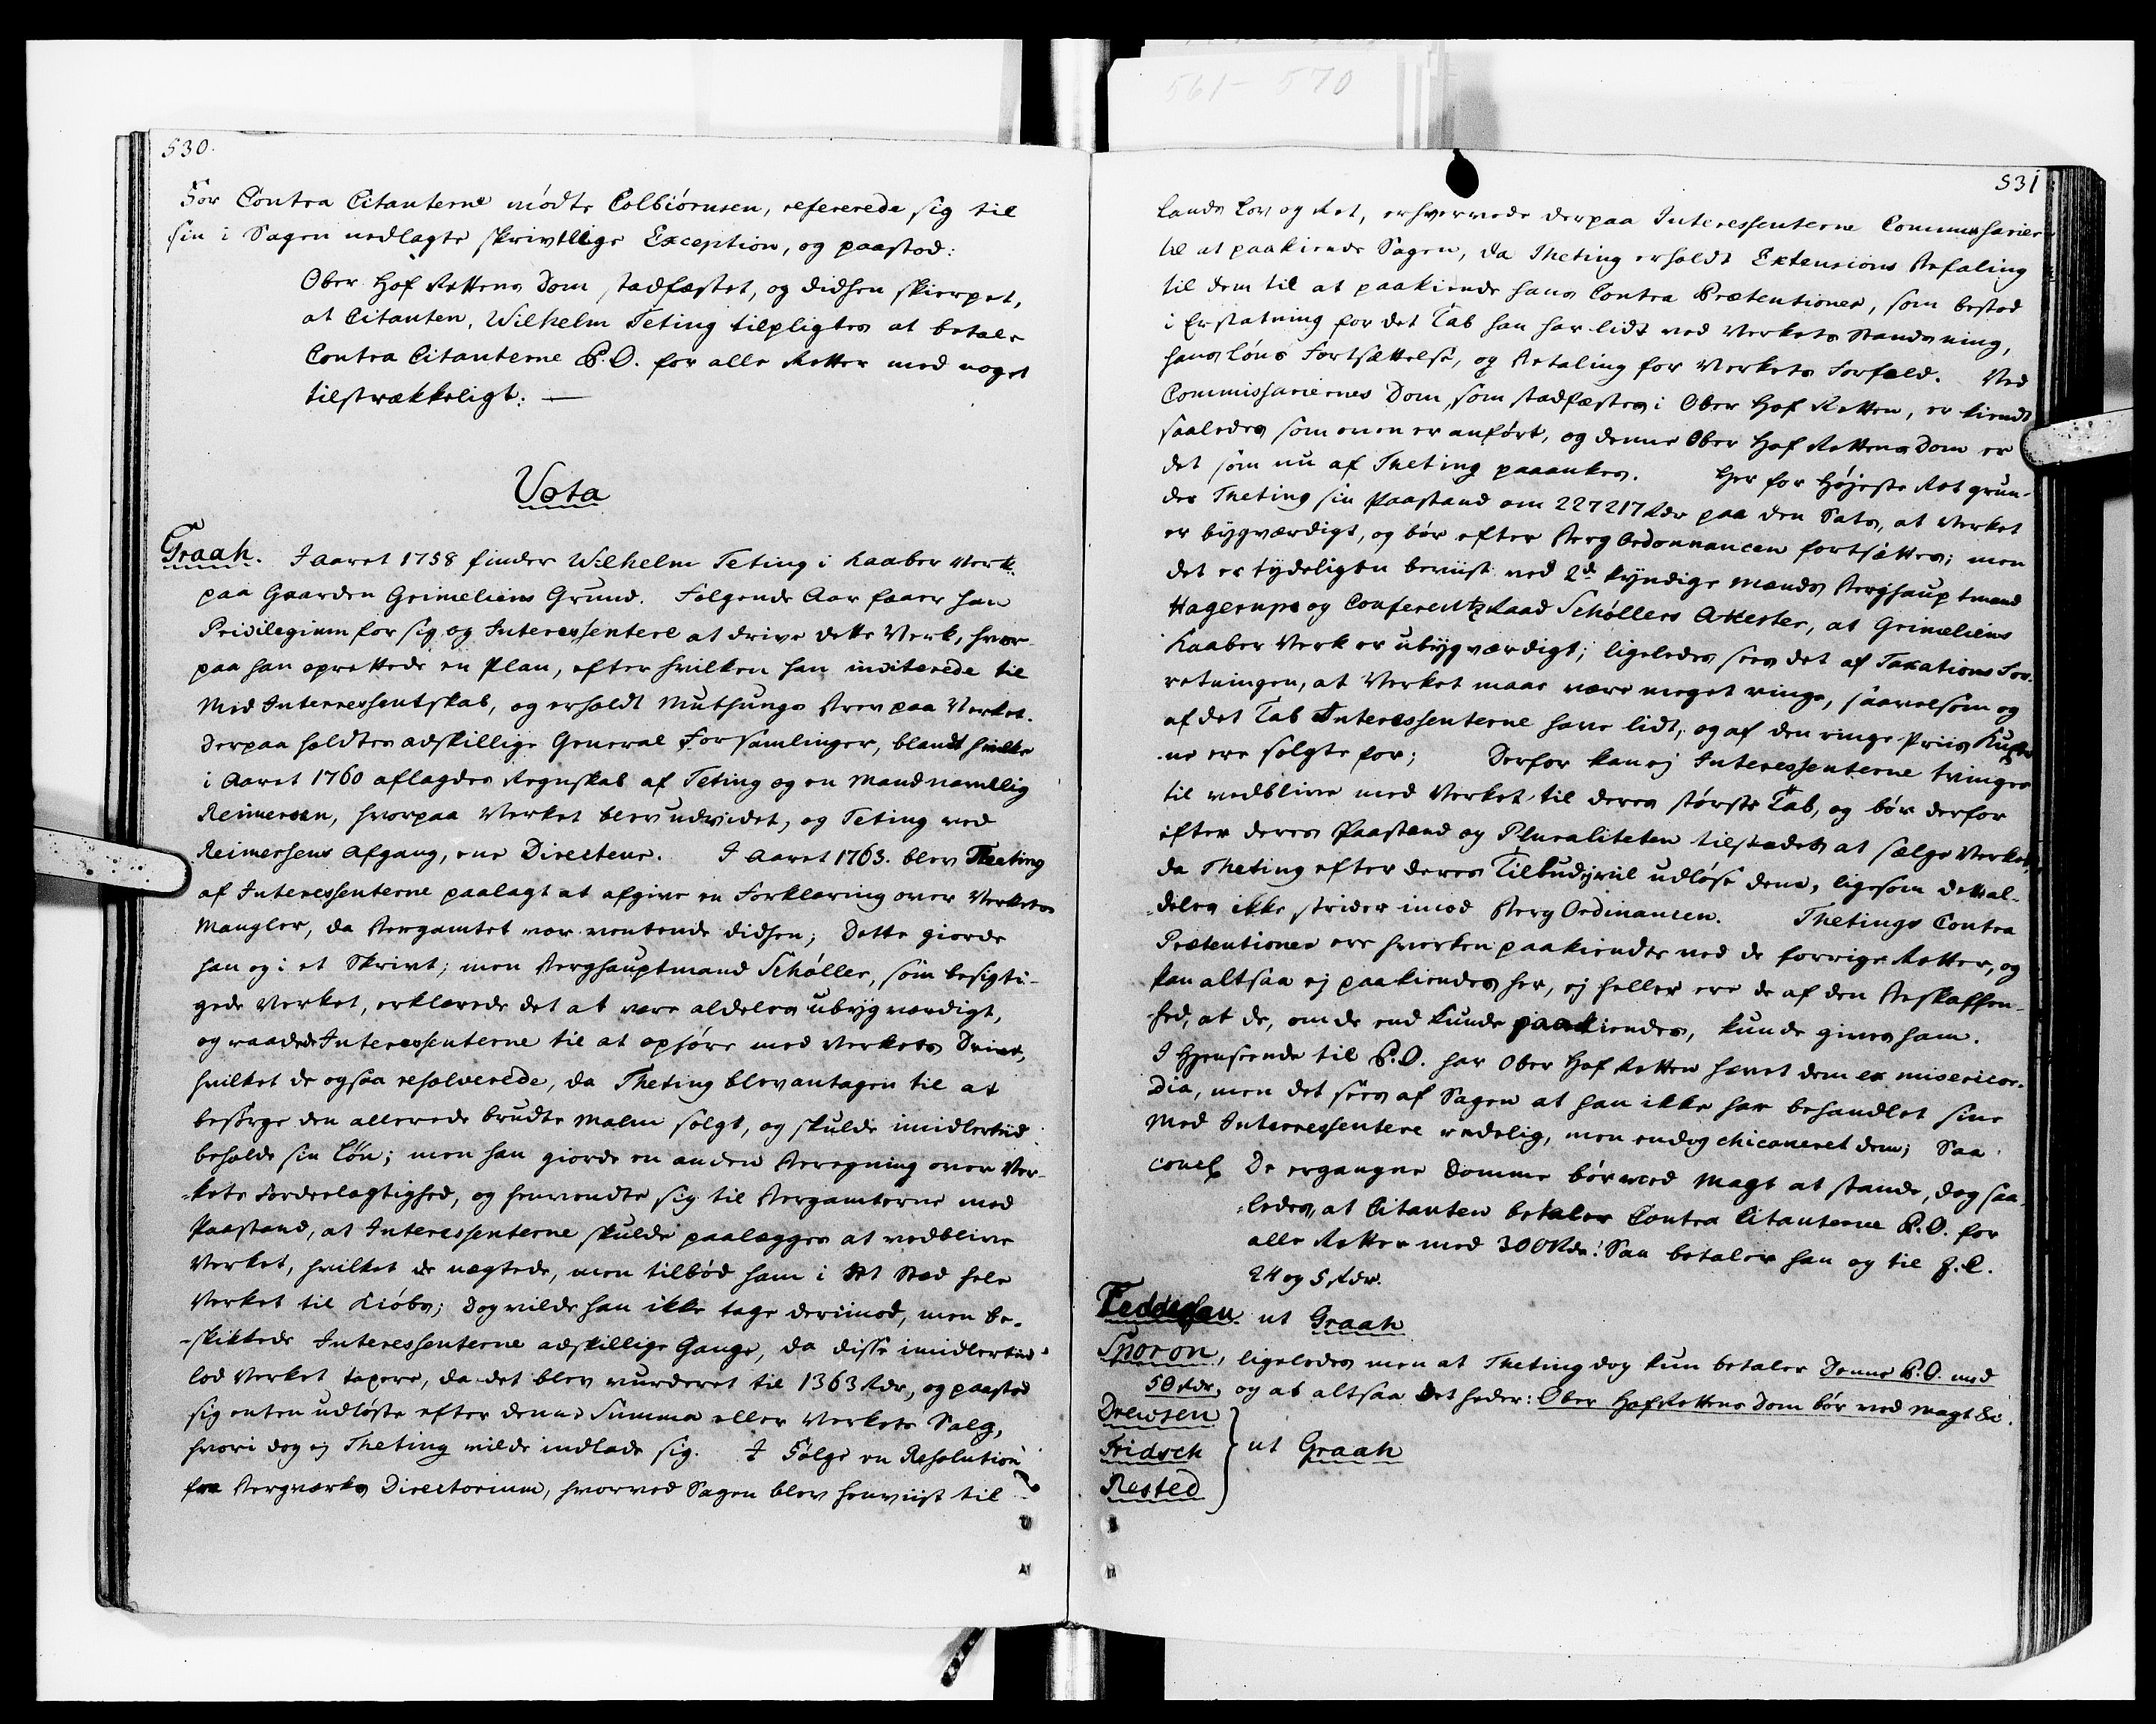 561-570
530.
For Contra Citanterne mødte Colbiørnsen, refererede sig til
sin i Sagen nedlagte skrivtlige Exception, og paastod:
Ober Hof Rettens Dom stadfæstet, og didhen skierpet,
at Citanten, Wilhelm Teting tilpligtes at betale
Contra Citanterne P.O. for alle Retter med noget
tilstrækkeligt: —
Vota
Graah. I aaret 1758 finder Wilhelm Teting i Kaaber Verk
paa Gaarden Grimeliens Grund. Følgende Aar faaer han
Privilegium for sig og Interessentere at drive dette Verk, hvor-
paa han oprettede en Plan, efter hvilken han inviterede til
Med Interressentskab, og erholdt Muthungs Brev paa Verket.
Derpaa holdtes adskillige General Forsamlinger, blandt hvilke
i Aaret 1760 aflagdes Regnskab af Teting og en Mand navnllig
Reimersen, hvorpaa Verket blev udvidet, og Teting ved
Reimersens Afgang, ene Directeur. I Aaret 1763. blev Theting
af Interessenterne paalagt at afgive en Forklaring over Verkets
Mangler, da Bergamtet var ventende didhen; Dette giorde
han og i et Skrivt; men Berghauptmand Schøller, som besigti-
gede Verket, erklærede det at være aldeles ubygværdigt,
og raadede Interessenterne til at ophøre med Verkets Drivt,
hvilket de ogsaa resolverede, da Theting blev antagen til at
besørge den allerede brudte Malm solgt, og skulde imidlertiid
beholde sin Løn; men han giorde en anden Beregning over Ver-
-kets Fordeelagtighed, og henvendte sig til Bergamterne med
Paastand, at Interessenterne skulde paalægges at vedblive
Verket, hvilket de nægtede, men tilbød ham i sit Sted hele
Verket til Kiøbs; Dog vilde han ikke tage derimod, men be-
-skikkede Interessenterne adskillige Gange, da disse imidlertiid
lod Verket taxere, da det blev vurderet til 1363 Rdr, og paastod
sig enten udløste efter denne Summa eller Verkets Salg,
hvori dog ej Theting vilde indlade sig. I Følge en Resolution
fra Bergværks Directorium, hvorved Sagen blev henviist til
531
Lands Lov og Ret, erhvervede derpaa Interessenterne Commissarier
til at paakiende Sagen, da Theting erholdt Extensions Befaling
til dem til at paakiende hans Contra Prætentioner, som bestod
i Erstatning for det Tab han har lidt ved Verkets Standsning,
hans Løns Fortsættelse, og Betaling for Verkets Forfald. Ved
Commissariernes Dom, som stadfæstes i Ober Hof Retten, er kiendt
saaledes som oven er anført, og denne Ober Hof Rettens Dom er
det som nu af Theting paaankes. Her for Højeste Ret grun-
der Theting sin Paastand om 227217 Rdr paa den Sats, at Verket
er bygværdigt, og bør efter Berg Ordonnancen fortsættes; men
det er tydeligen beviist ved 2de kyndige Mænds Berghauptmand
Hagerups og Conferentz Raad Schøllers Attester, at Grimeliens
Kaaber Verk er ubygværdigt; ligeledes sees det af Taxations For-
retningen, at Verket maae være meget ringe, saavelsom og
af det Tab Interessenterne have lidt, og af den ringe Priis Kuxer-
ne ere solgte for; Derfor kan ej Interessenterne tvinges
til vedblive med Verket til deres største Tab, og bør derfor
efter deres Paastand og Pluraliteten tilstædes at sælge Verket,
da Theting efter deres Tilbud ej vil udløse dem, ligesom dette al-
-deles ikke strider imod Berg Ordinancen. Thetings Contra
Prætentioner ere hverken paakiendte ved de forrige Retter, og
kan altsaa ej paakiendes her, ej heller ere de af den Beskaffen-
-hed, at de, om de end kunde paakiendes, kunde gives ham.
I Hensende til P.O. har Ober Hof Retten hævet dem ex misericor-
dia, men det sees af Sagen at han ikke har behandlet sine
Med Interressentere redelig, men endog chicaneret dem; Saa
concl De ergangne Domme bør ved Magt at stande, dog saa-
-ledes, at Citanten betaler Contra Citanterne P.O. for
alle Retter med 300 Rdr: Saa betaler han og til J.C.
24 og 5 Rdr.
Feddersen. ut Graah
Sporon, ligeledes men at Theting dog kun betaler Denne P.O. med
50 Rdr, og at altsaa det heder: Ober Hof Rettens Dom bør ved Magt &c.
Drewsen
Fridsch ut Graah
Rested